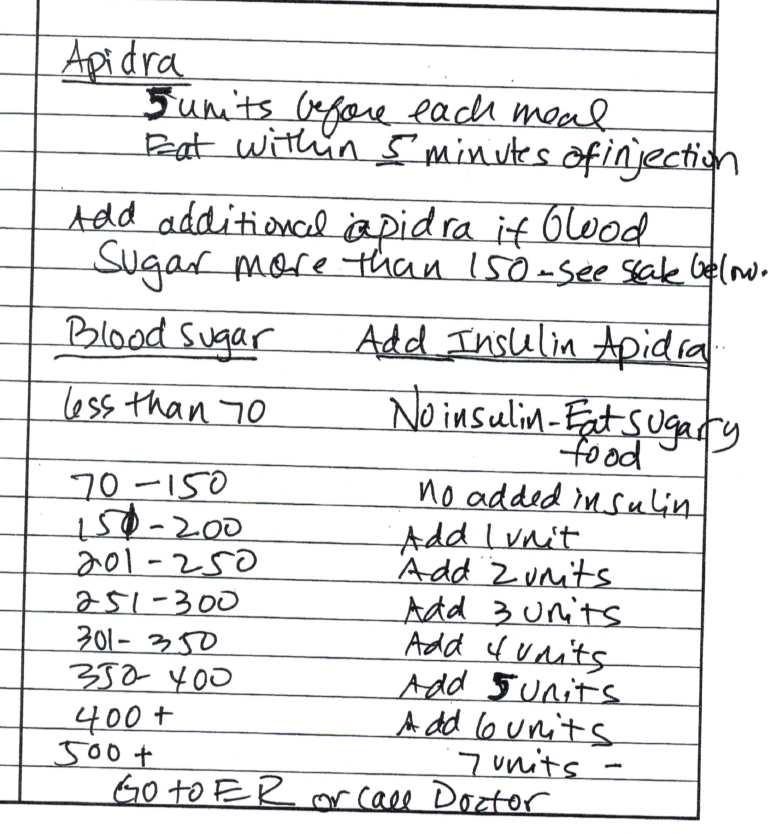 Apidra
5 units before each meal
Eat within 5 minutes of injection
Add additional apidra if blood
Sugar more than 150 - see scale below.
Blood sugar Add Insulin Apidra
less than 70 No insulin - Eat sugary
food
70 - 150 no added insulin
151 - 200 Add 1 unit
201 - 250 Add 2 units
251 - 300 Add 3 units
301 - 350 Add 4 units
350 - 400 Add 5 units
400 + Add 6 units
500 + 7 units -
Go to ER or call Doctor